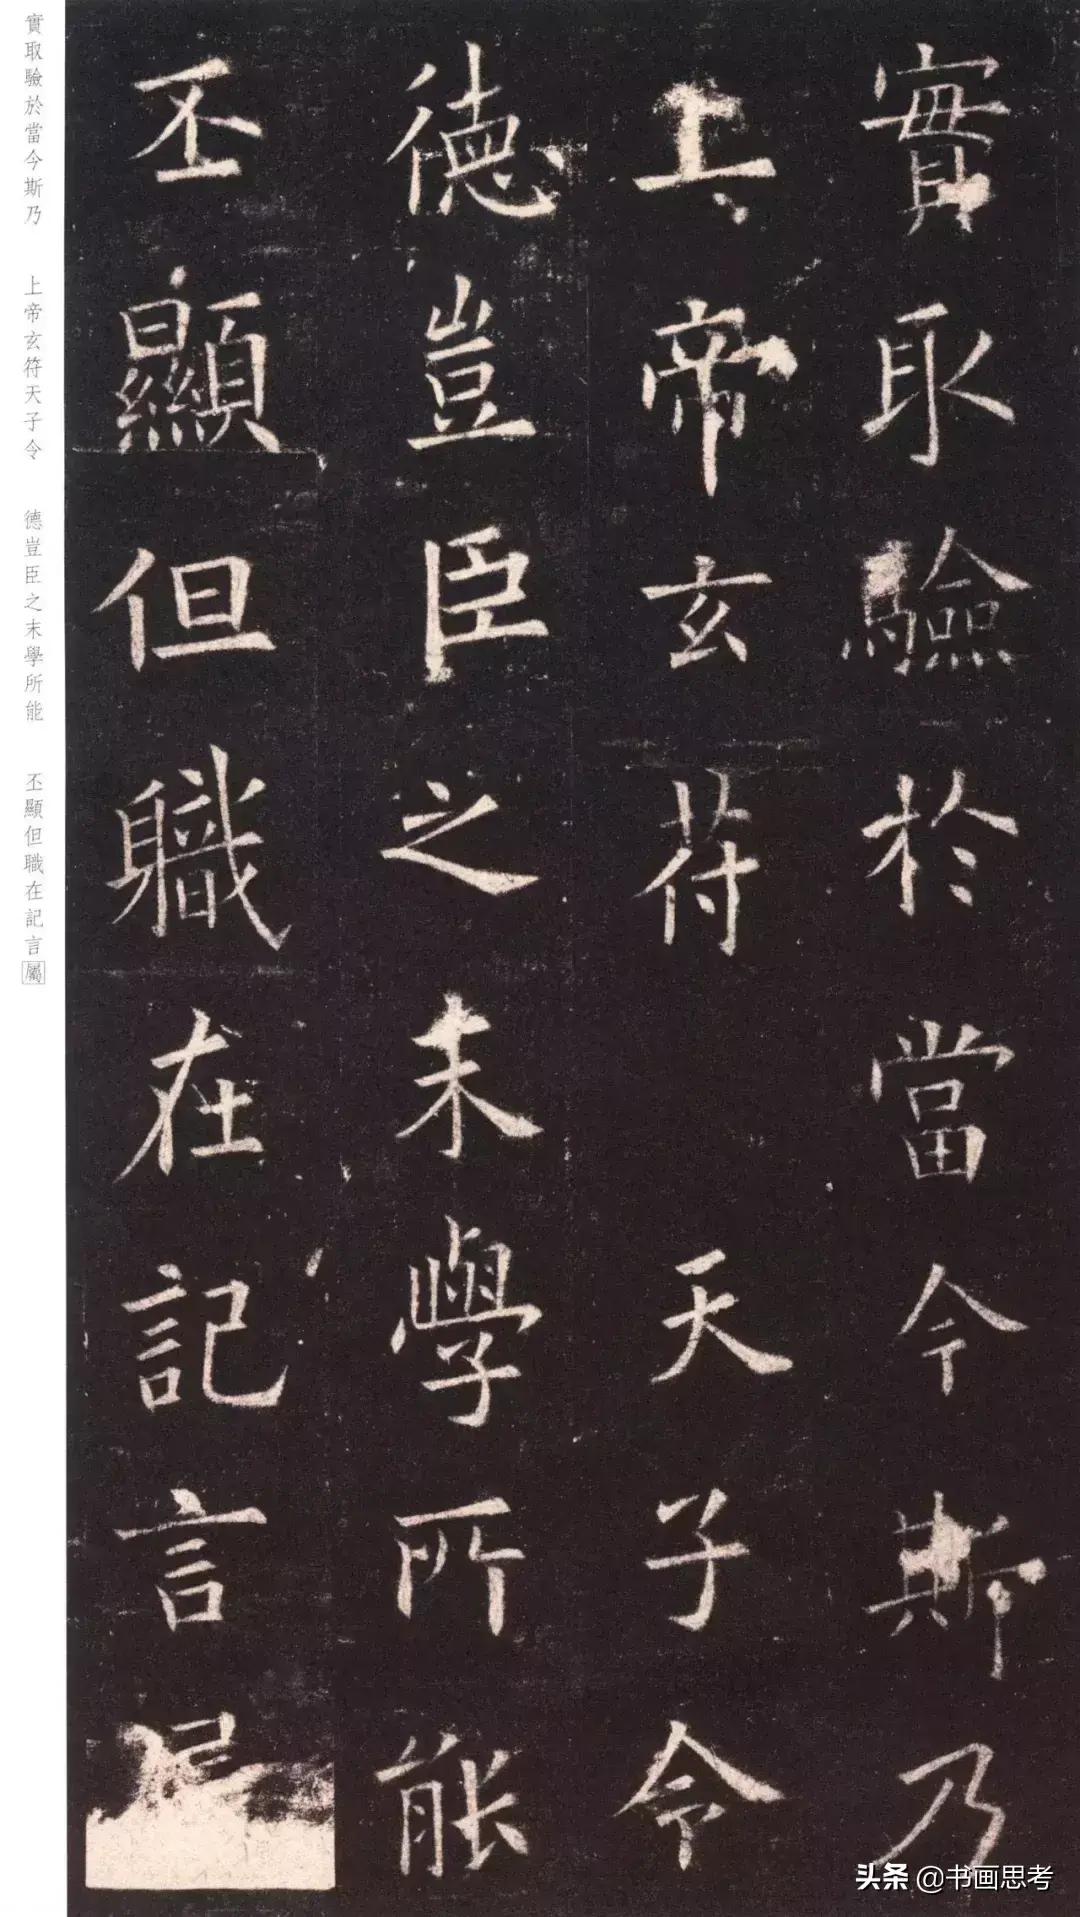 實取驗於當今斯乃
上帝玄符天子令
德豈臣之末學所能
丕顯但職在記言
實取驗於當今斯乃 上帝玄符天子令 德豈臣之末學所能 丕顯但職在記言屬
头条 @书画思考